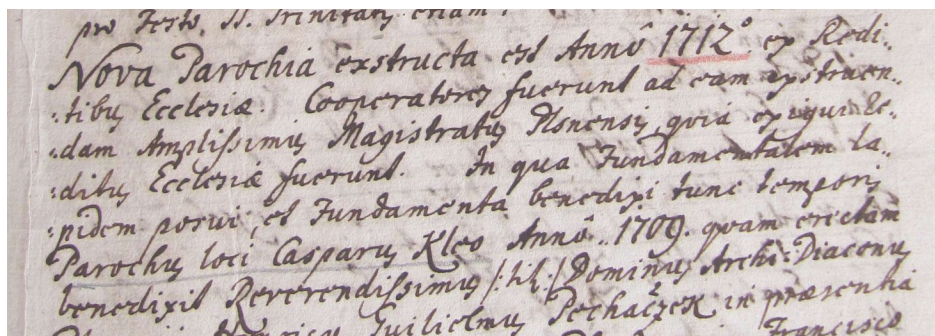 pro Festo, SS. Trinitatis etiam
Nova Parochia exstructa est Annô 1712º. ex Redi..
:tibus Ecclesiæ. Cooperatores fuerunt ad eam exstruen..
:dam Amplissimus Magistratus Plsnensis, quia exigui Re..
:ditus Ecclesiæ fuerunt. In qua Fundamentalem la..
:pidem posui, et Fundamenta benedixi tunc temporis
Parochus loci Casparus Kleo Annô. 1709. quam erectam
benedixit Reverendissimus /: tit :/ Dominus Archi-Diaconus
Guilielmus Pechaczek in præsentia
Francisco